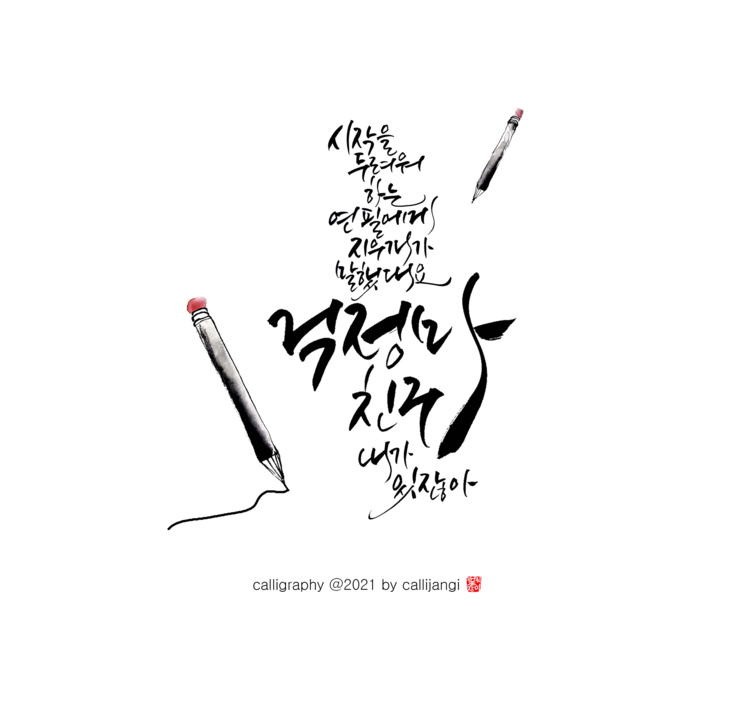 시작을
두려워
하는
연필에게
지우개가
말했대요
걱정마
친구
내가
있잖아
calligraphy @2021 by callijangi